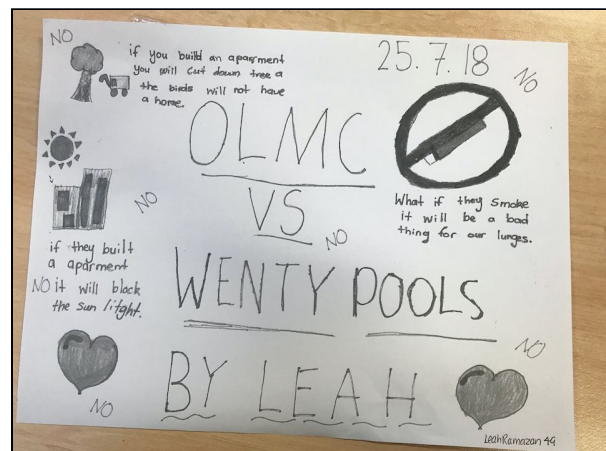 NO
if you build an aparment
you will cut down tree a
the birds will not have
a home.
25.7.18
NO
OLMC
VS
NO
WENTY POOLS
BY LEAH
What if they smoke
it will be a bad
thing for our lunges.
NO
if they built
a aparment
NO it will block
the sun litght.
NO
NO
LeahRamazan 4G